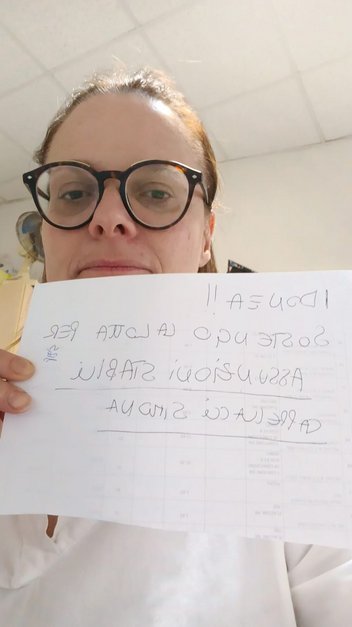 IDONEA !!
SOSTENGO LA LOTTA PER
ASSUNZIONI STABILI
CAPPELLACCI SIMONA